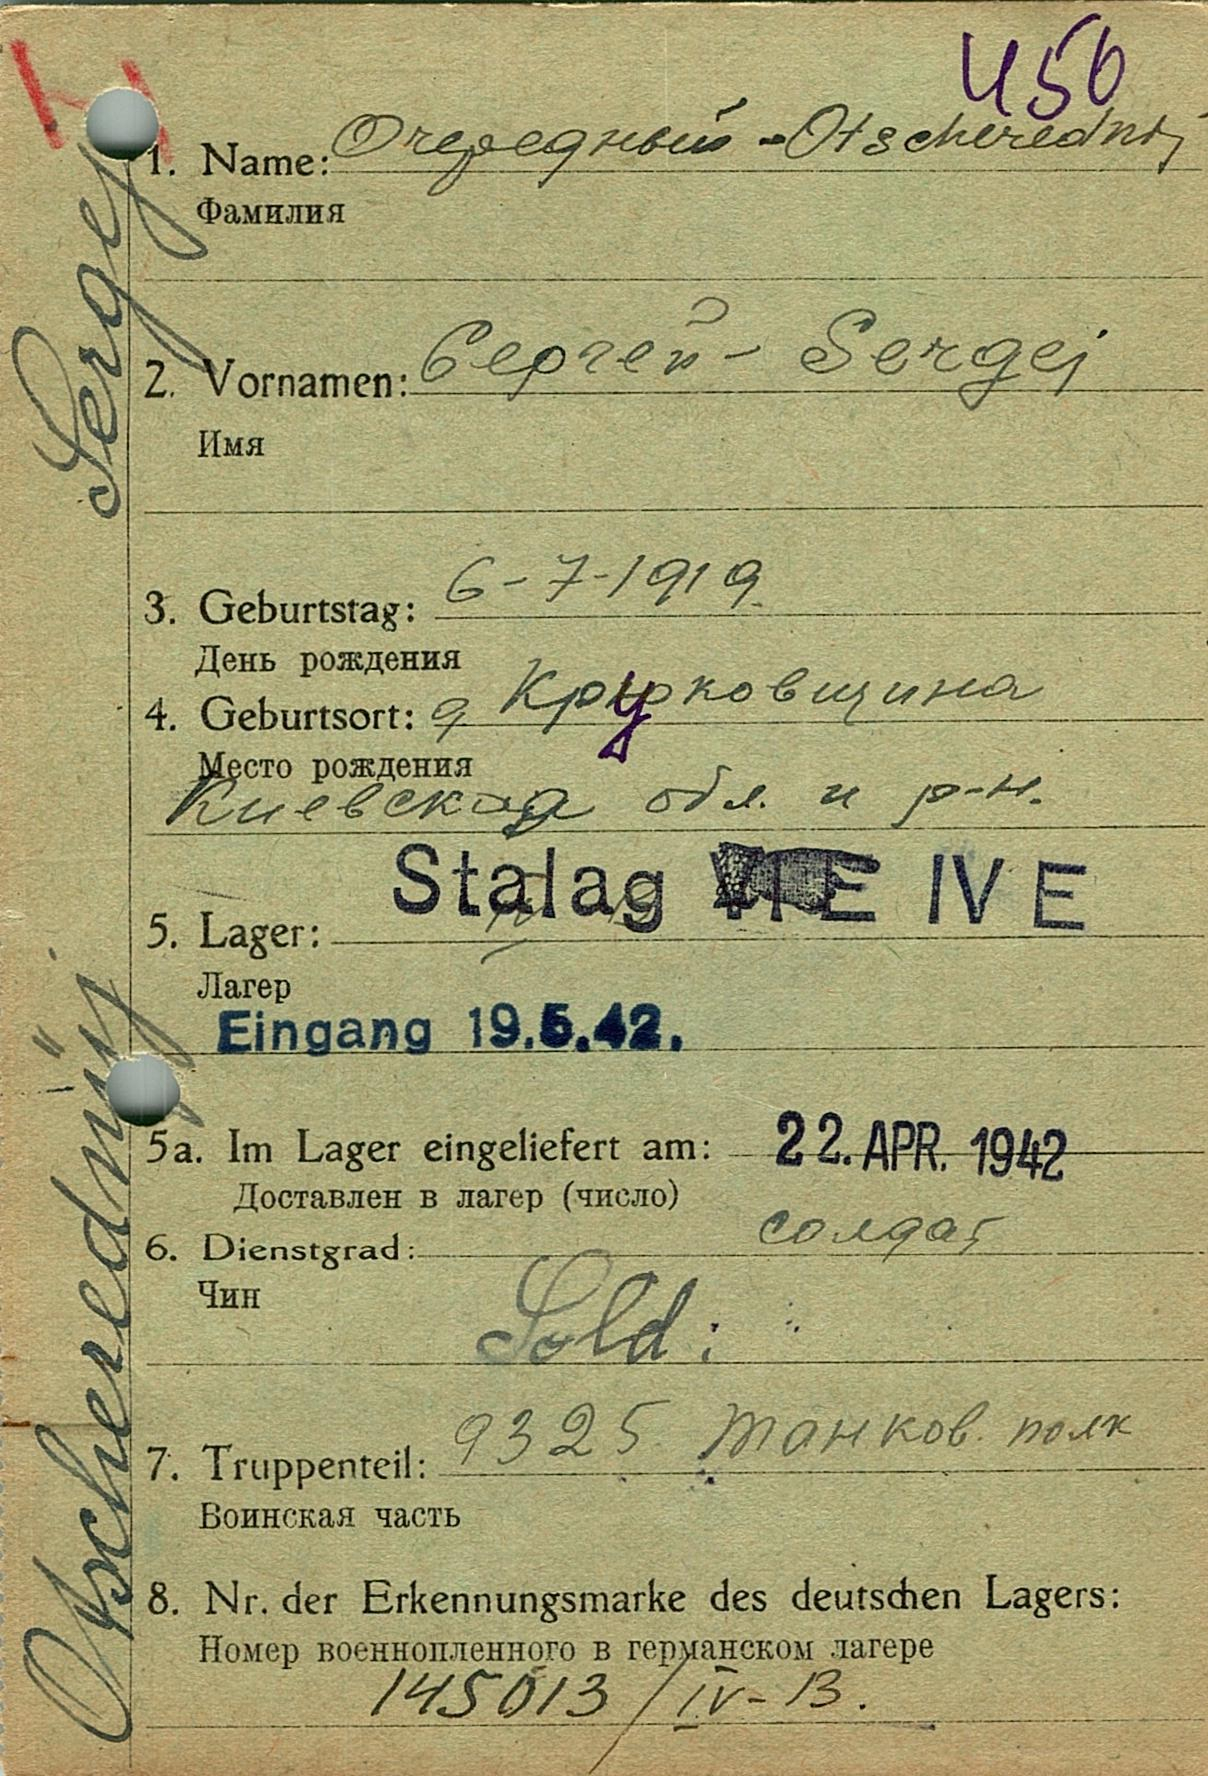 456
1. Name: Очередный - Otscherednij
Фамилия
2. Vornamen: Сергей - Sergej
Имя
3. Geburtstag: 6-7-1919
День рождения
4. Geburtsort: д Круковщина
Место рождения
Киевская обл. и р-н.
Stalag IV E
5. Lager:
Лагер
Eingang 19.5.42.
5a. Im Lager eingeliefert am: 22. APR. 1942
Доставлен в лагер (число)
6. Dienstgrad: солдат
Чин
Sold:
7. Truppenteil: 9325 танков. полк
Воинская часть
8. Nr. der Erkennungsmarke des deutschen Lagers:
Номер военнопленного в германском лагере
145013 / IV-B.
Otscherednij Sergej